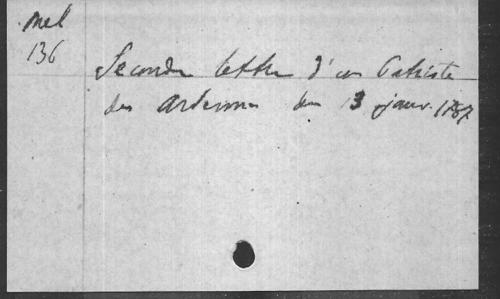 Mel
136
Seconde lettre d'un Patriote
des Ardennes du 13 janv. 1787